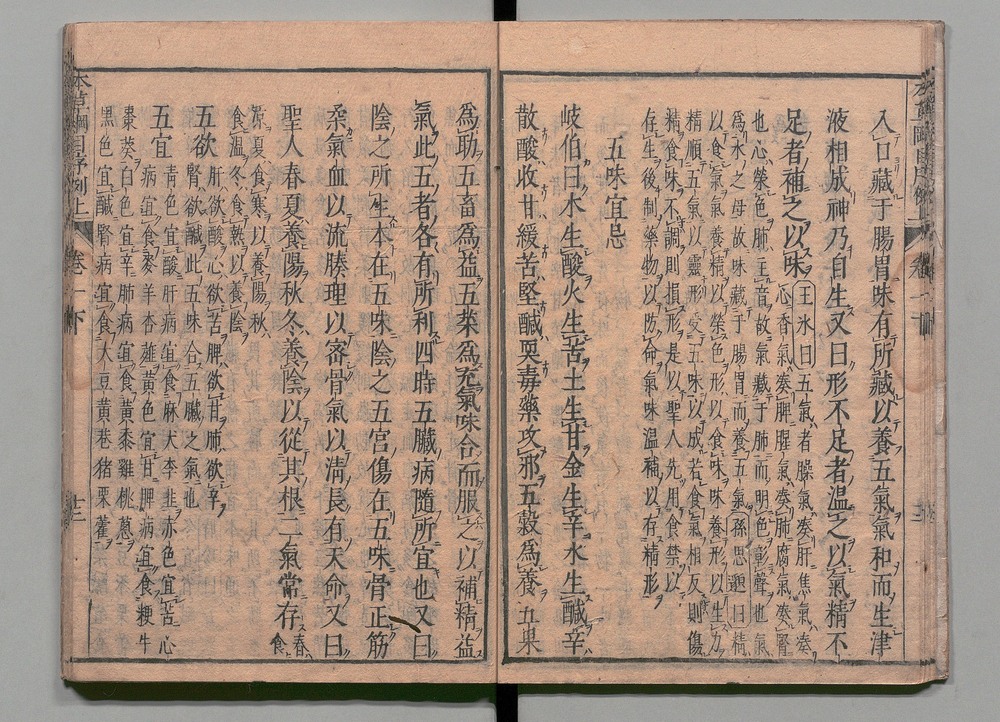 入口藏于腸胃味有所藏以養五氣氣和而生津
液相成神乃自生又曰形不足者溫之以氣精不
足者補之以味 王冰曰五氣者臊氣湊肝焦氣湊
心香氣湊脾腥氣湊肺腐氣湊腎
也心榮色肺主音故氣藏于肺而明色彰聲也氣
為水之母故味藏于腸胃而養五氣孫思邈曰精
以食氣氣養精以榮色形以食味味養形以生力
精順五氣以靈形受五味以成若食氣相反則傷
精食味不調則損形是以聖人先用食禁以
存生後制藥物以防命氣味溫補以存精形
五味宜忌
岐伯曰木生酸火生苦土生甘金生辛水生鹹辛
散酸收甘緩苦堅鹹耎毒藥攻邪五穀為養五果
為助五畜為益五菜為充氣味合而服之以補精益
氣此五者各有所利四時五臟病隨所宜也又曰
陰之所生本在五味陰之五宮傷在五味骨正筋
柔氣血以流腠理以密骨氣以清長有天命又曰
聖人春夏養陽秋冬養陰以從其根二氣常存 春食
涼夏食寒以養陽秋
食溫冬食熱以養陰
五欲 肝欲酸心欲苦脾欲甘肺欲辛
腎欲鹹此五味合五臟之氣也
五宜 青色宜酸肝病宜食麻犬李韭赤色宜苦心
病宜食麥羊杏薤黃色宜甘脾病宜食粳牛
棗葵白色宜辛肺病宜食黃黍雞桃葱
黑色宜鹹腎病宜食大豆黃卷猪栗藿
本草綱目序例上 卷一下 十二